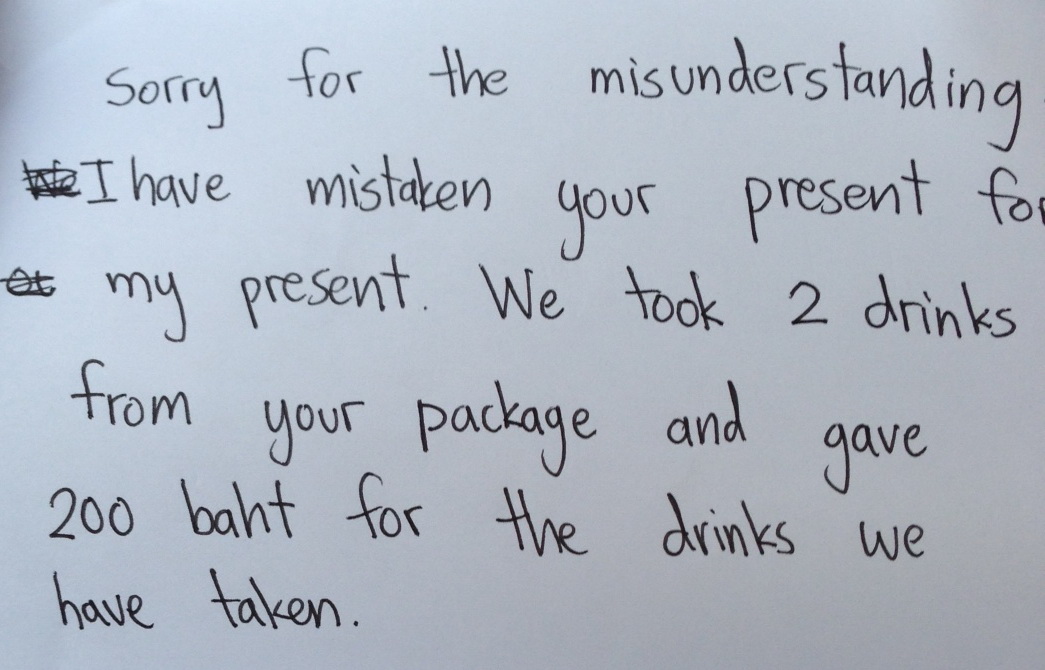 Sorry for the misunderstanding
I have mistaken your present for
my present. We took 2 drinks
from your package and gave
200 baht for the drinks we
have taken.